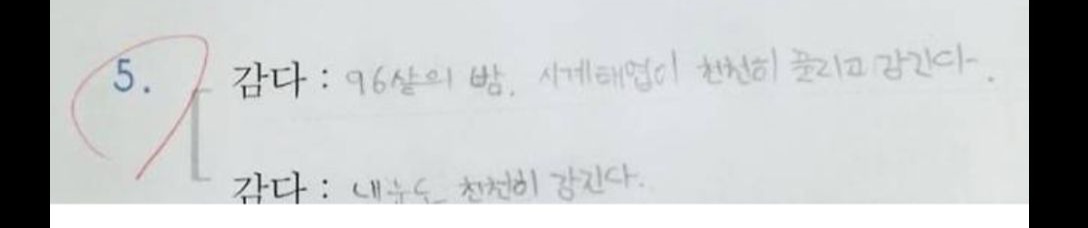 5. 감다 : 96살의 밤. 시계태엽이 천천히 풀리고 감긴다.
감다 : 내 눈도 천천히 감긴다.